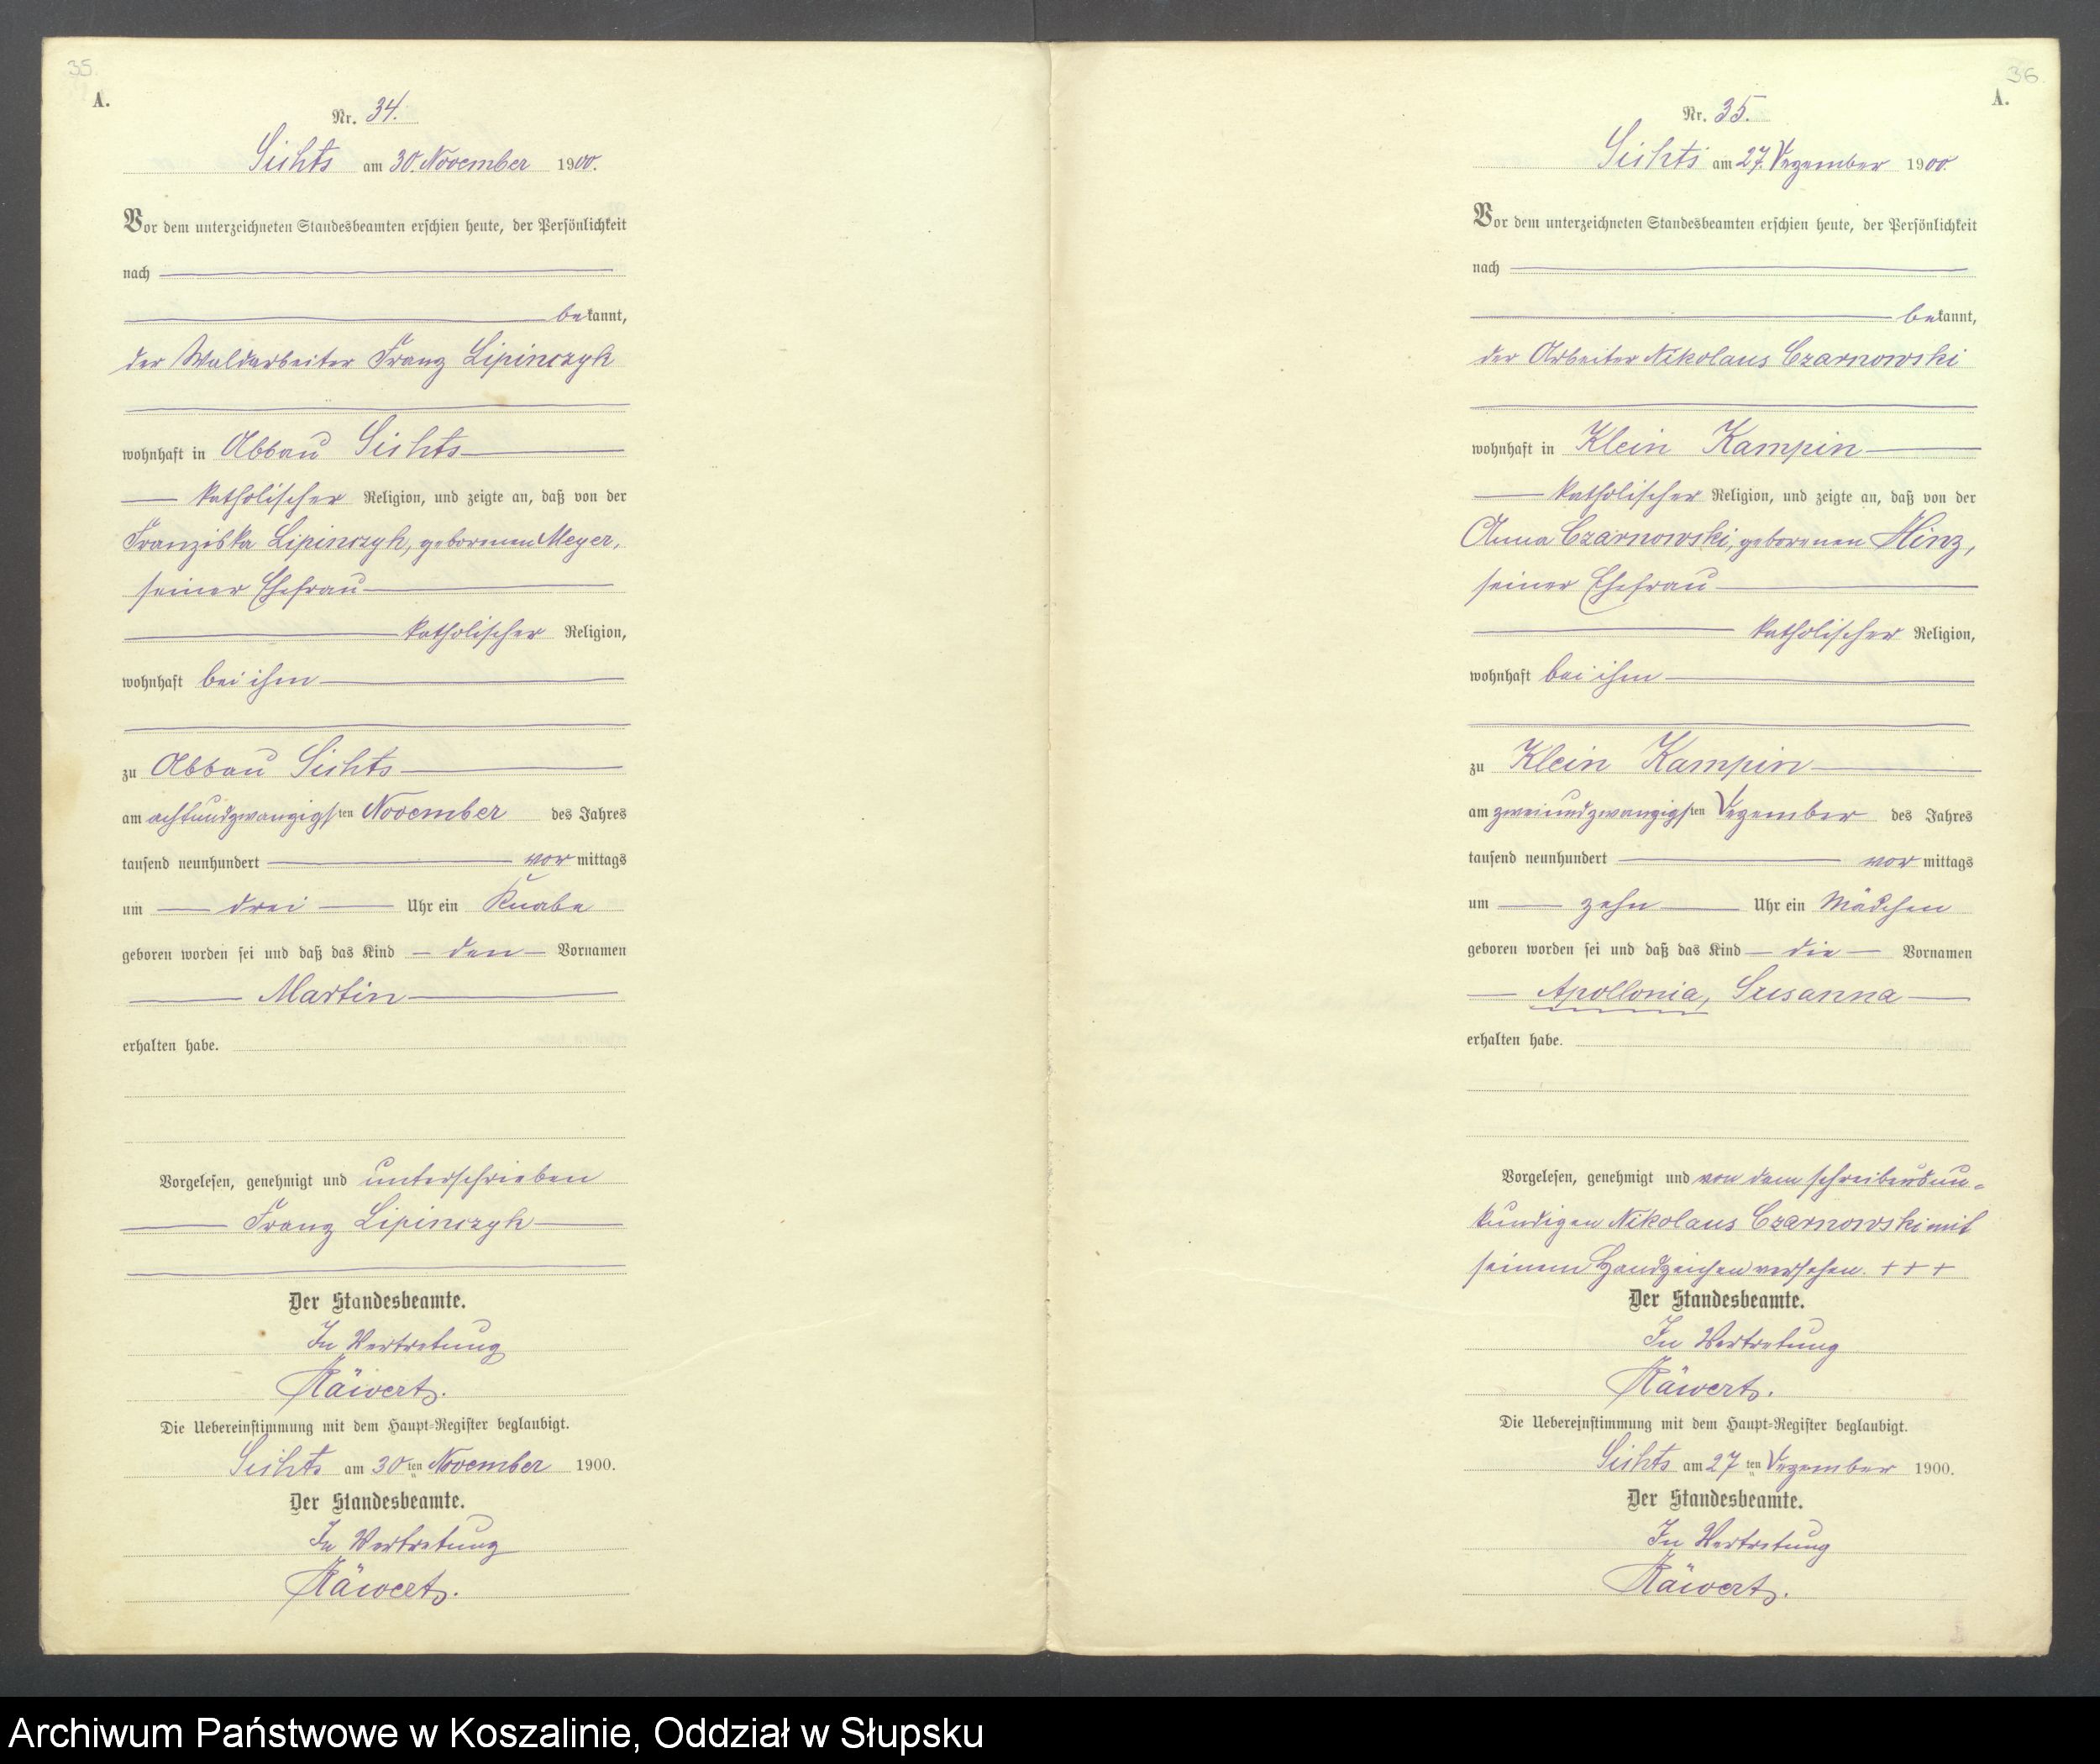 35.
A.
Nr. 34.
Sichts am 30. November 1900.
Vor dem unterzeichneten Standesbeamten erschien heute, der Persönlichkeit
nach
bekannt,
der Waldarbeiter Franz Lipinczyk
wohnhaft in Abbau Sichts
katholischer Religion, und zeigte an, daß von der
Franziska Lipinczyk, geborenen Meyer,
seiner Ehefrau
katholischer Religion,
wohnhaft bei ihm
zu Abbau Sichts
am achtundzwanzigsten November des Jahres
tausend neunhundert vormittags
um drei Uhr ein Knabe
geboren worden sei und daß das Kind den Vornamen
Martin
erhalten habe.
Vorgelesen, genehmigt und unterschrieben
Franz Lipinczyk
Der Standesbeamte.
In Vertretung
Räwert.
Die Uebereinstimmung mit dem Haupt-Register beglaubigt.
Sichts am 30ten November 1900.
Der Standesbeamte.
In Vertretung
Räwert.
36.
A.
Nr. 35.
Sichts am 27. Dezember 1900.
Vor dem unterzeichneten Standesbeamten erschien heute, der Persönlichkeit
nach
bekannt,
der Arbeiter Nikolaus Czarnowski
wohnhaft in Klein Kampin
katholischer Religion, und zeigte an, daß von der
Anna Czarnowski, geborenen Hinz,
seiner Ehefrau
katholischer Religion,
wohnhaft bei ihm
zu Klein Kampin
am zweiundzwanzigsten Dezember des Jahres
tausend neunhundert vormittags
um zehn Uhr ein Mädchen
geboren worden sei und daß das Kind die Vornamen
Apollonia, Susanna
erhalten habe.
Vorgelesen, genehmigt und von dem schreibensun-
kundigen Nikolaus Czarnowski mit
seinem Handzeichen versehen. + + +
Der Standesbeamte.
In Vertretung
Räwert.
Die Uebereinstimmung mit dem Haupt-Register beglaubigt.
Sichts am 27ten Dezember 1900.
Der Standesbeamte.
In Vertretung
Räwert.
Archiwum Państwowe w Koszalinie, Oddział w Słupsku